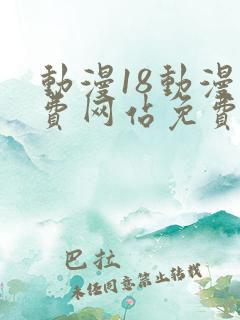 動漫18動漫
费网佔免費
巴拉
未经同意禁止转载